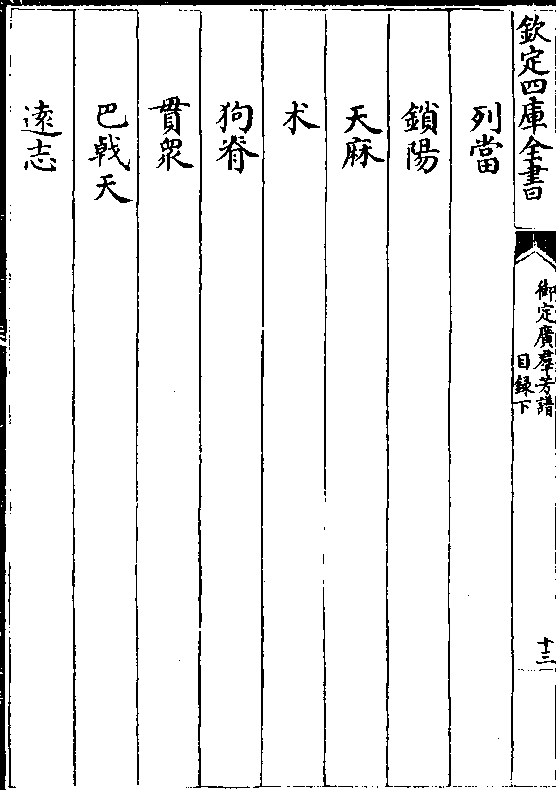 欽定四庫全書
御定廣羣芳譜
目録下
十三
列當
鎖陽
天麻
术
狗脊
貫衆
巴戟天
遠志